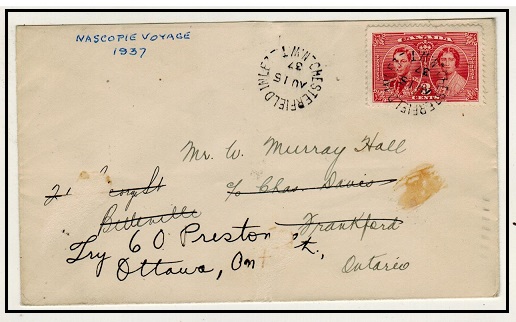 NASCOPIE VOYAGE
1937
CHESTERFIELD INLET N.W.T.
AU 15
37
CANADA
3
CENTS
Mr. W. Murray Hall
c/o Chas. Davis
Belleville
Frankford
Try 60 Preston St.,
Ottawa, Ont
Ontario